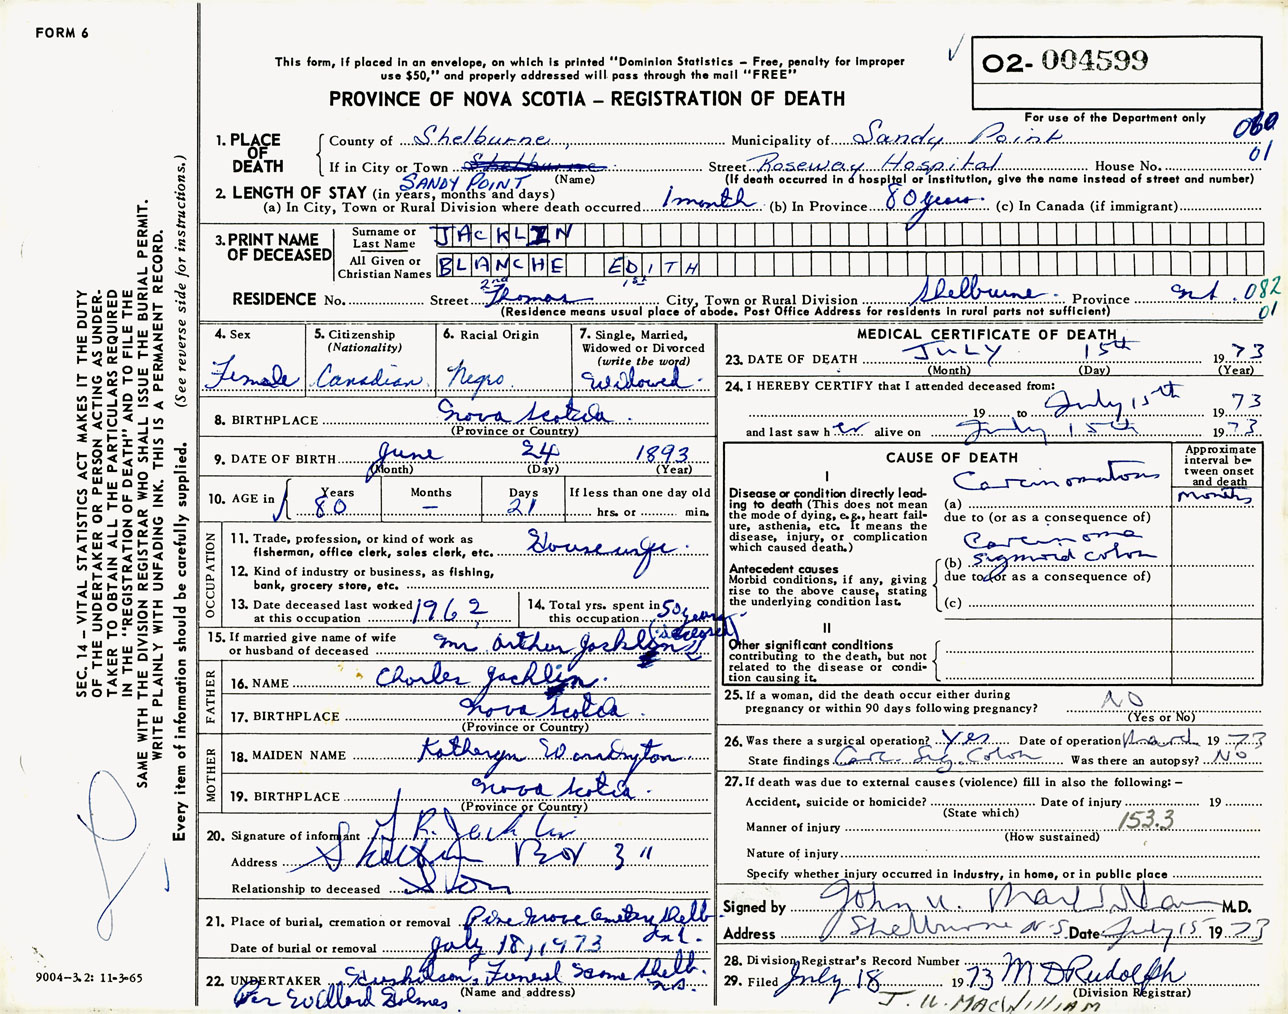 FORM 6
This form, if placed in an envelope, on which is printed "Dominion Statistics – Free, penalty for improper
use $50," and properly addressed will pass through the mail "FREE"
PROVINCE OF NOVA SCOTIA – REGISTRATION OF DEATH
O2- 004599
For use of the Department only
060
01
1. PLACE OF DEATH
County of Shelburne, Municipality of Sandy Point
If in City or Town Shelburne Street Roseway Hospital House No.
SANDY POINT (Name) (If death occurred in a hospital or institution, give the name instead of street and number)
2. LENGTH OF STAY (in years, months and days)
(a) In City, Town or Rural Division where death occurred 1 month (b) In Province 80 years. (c) In Canada (if immigrant)
3. PRINT NAME OF DECEASED
Surname or Last Name JACKLIN
All Given or Christian Names BLANCHE EDITH
2nd 1st
RESIDENCE No. Street Thomas City, Town or Rural Division Shelburne. Province 082
01
(Residence means usual place of abode. Post Office Address for residents in rural parts not sufficient)
4. Sex
Female
5. Citizenship
(Nationality)
Canadian
6. Racial Origin
Negro.
7. Single, Married,
Widowed or Divorced
(write the word)
Widowed.
8. BIRTHPLACE Nova Scotia.
(Province or Country)
9. DATE OF BIRTH June 24 1893
(Month) (Day) (Year)
10. AGE in Years Months Days If less than one day old
80 – 21 hrs. or min.
OCCUPATION
11. Trade, profession, or kind of work as
fisherman, office clerk, sales clerk, etc. Housewife.
12. Kind of industry or business, as fishing,
bank, grocery store, etc.
13. Date deceased last worked
at this occupation 1962
14. Total yrs. spent in
this occupation 50 years
15. If married give name of wife
or husband of deceased Mr. Arthur Jacklin (deceased)
FATHER
16. NAME Charles Jacklin.
17. BIRTHPLACE Nova Scotia.
(Province or Country)
MOTHER
18. MAIDEN NAME Katheryn
19. BIRTHPLACE Nova Scotia.
(Province or Country)
20. Signature of informant
Address Box 311
Relationship to deceased Son
21. Place of burial, cremation or removal Pine Grove Cemetery Shelb.
Date of burial or removal July 18, 1973
22. UNDERTAKER Funeral Home Shelb. N.S.
(Name and address)
Per Holmes.
MEDICAL CERTIFICATE OF DEATH
23. DATE OF DEATH JULY 15th 1973
(Month) (Day) (Year)
24. I HEREBY CERTIFY that I attended deceased from:
19 to July 15th 1973
and last saw her alive on July 15th 1973
CAUSE OF DEATH
Approximate interval between onset and death
I
Disease or condition directly leading to death (This does not mean the mode of dying, e.g., heart failure, asthenia, etc. It means the disease, injury, or complication which caused death.)
(a) Carcinomatosis months
due to (or as a consequence of)
Antecedent causes
Morbid conditions, if any, giving rise to the above cause, stating the underlying condition last.
(b) Carcinoma sigmoid colon
due to (or as a consequence of)
(c)
II
Other significant conditions
contributing to the death, but not related to the disease or condition causing it.
25. If a woman, did the death occur either during
pregnancy or within 90 days following pregnancy? NO
(Yes or No)
26. Was there a surgical operation? Yes Date of operation March 1973
State findings Carc. Sig. Colon Was there an autopsy? NO
27. If death was due to external causes (violence) fill in also the following: –
Accident, suicide or homicide? Date of injury 19
(State which)
153.3
Manner of injury
(How sustained)
Nature of injury
Specify whether injury occurred in industry, in home, or in public place
Signed by John U. MacWilliam M.D.
Address Shelburne N.S. Date July 15 1973
28. Division Registrar's Record Number
29. Filed July 18 1973 M D Rudolph
(Division Registrar)
J. U. MACWILLIAM
SEC. 14 – VITAL STATISTICS ACT MAKES IT THE DUTY
OF THE UNDERTAKER OR PERSON ACTING AS UNDER-
TAKER TO OBTAIN ALL THE PARTICULARS REQUIRED
IN THE "REGISTRATION OF DEATH" AND TO FILE THE
SAME WITH THE DIVISION REGISTRAR WHO SHALL ISSUE THE BURIAL PERMIT.
WRITE PLAINLY WITH UNFADING INK. THIS IS A PERMANENT RECORD.
Every item of information should be carefully supplied. (See reverse side for instructions.)
9004–3.2: 11-3-65